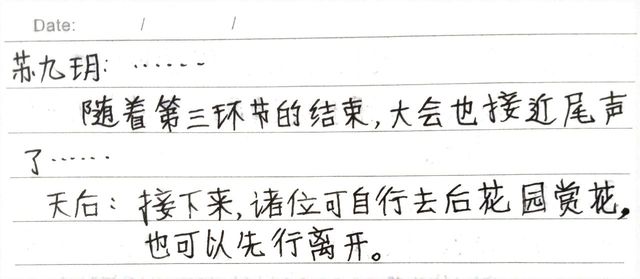 Date: / /
苏九玥：……
随着第三环节的结束,大会也接近尾声
了……
天后：接下来,诸位可自行去后花园赏花,
也可以先行离开。